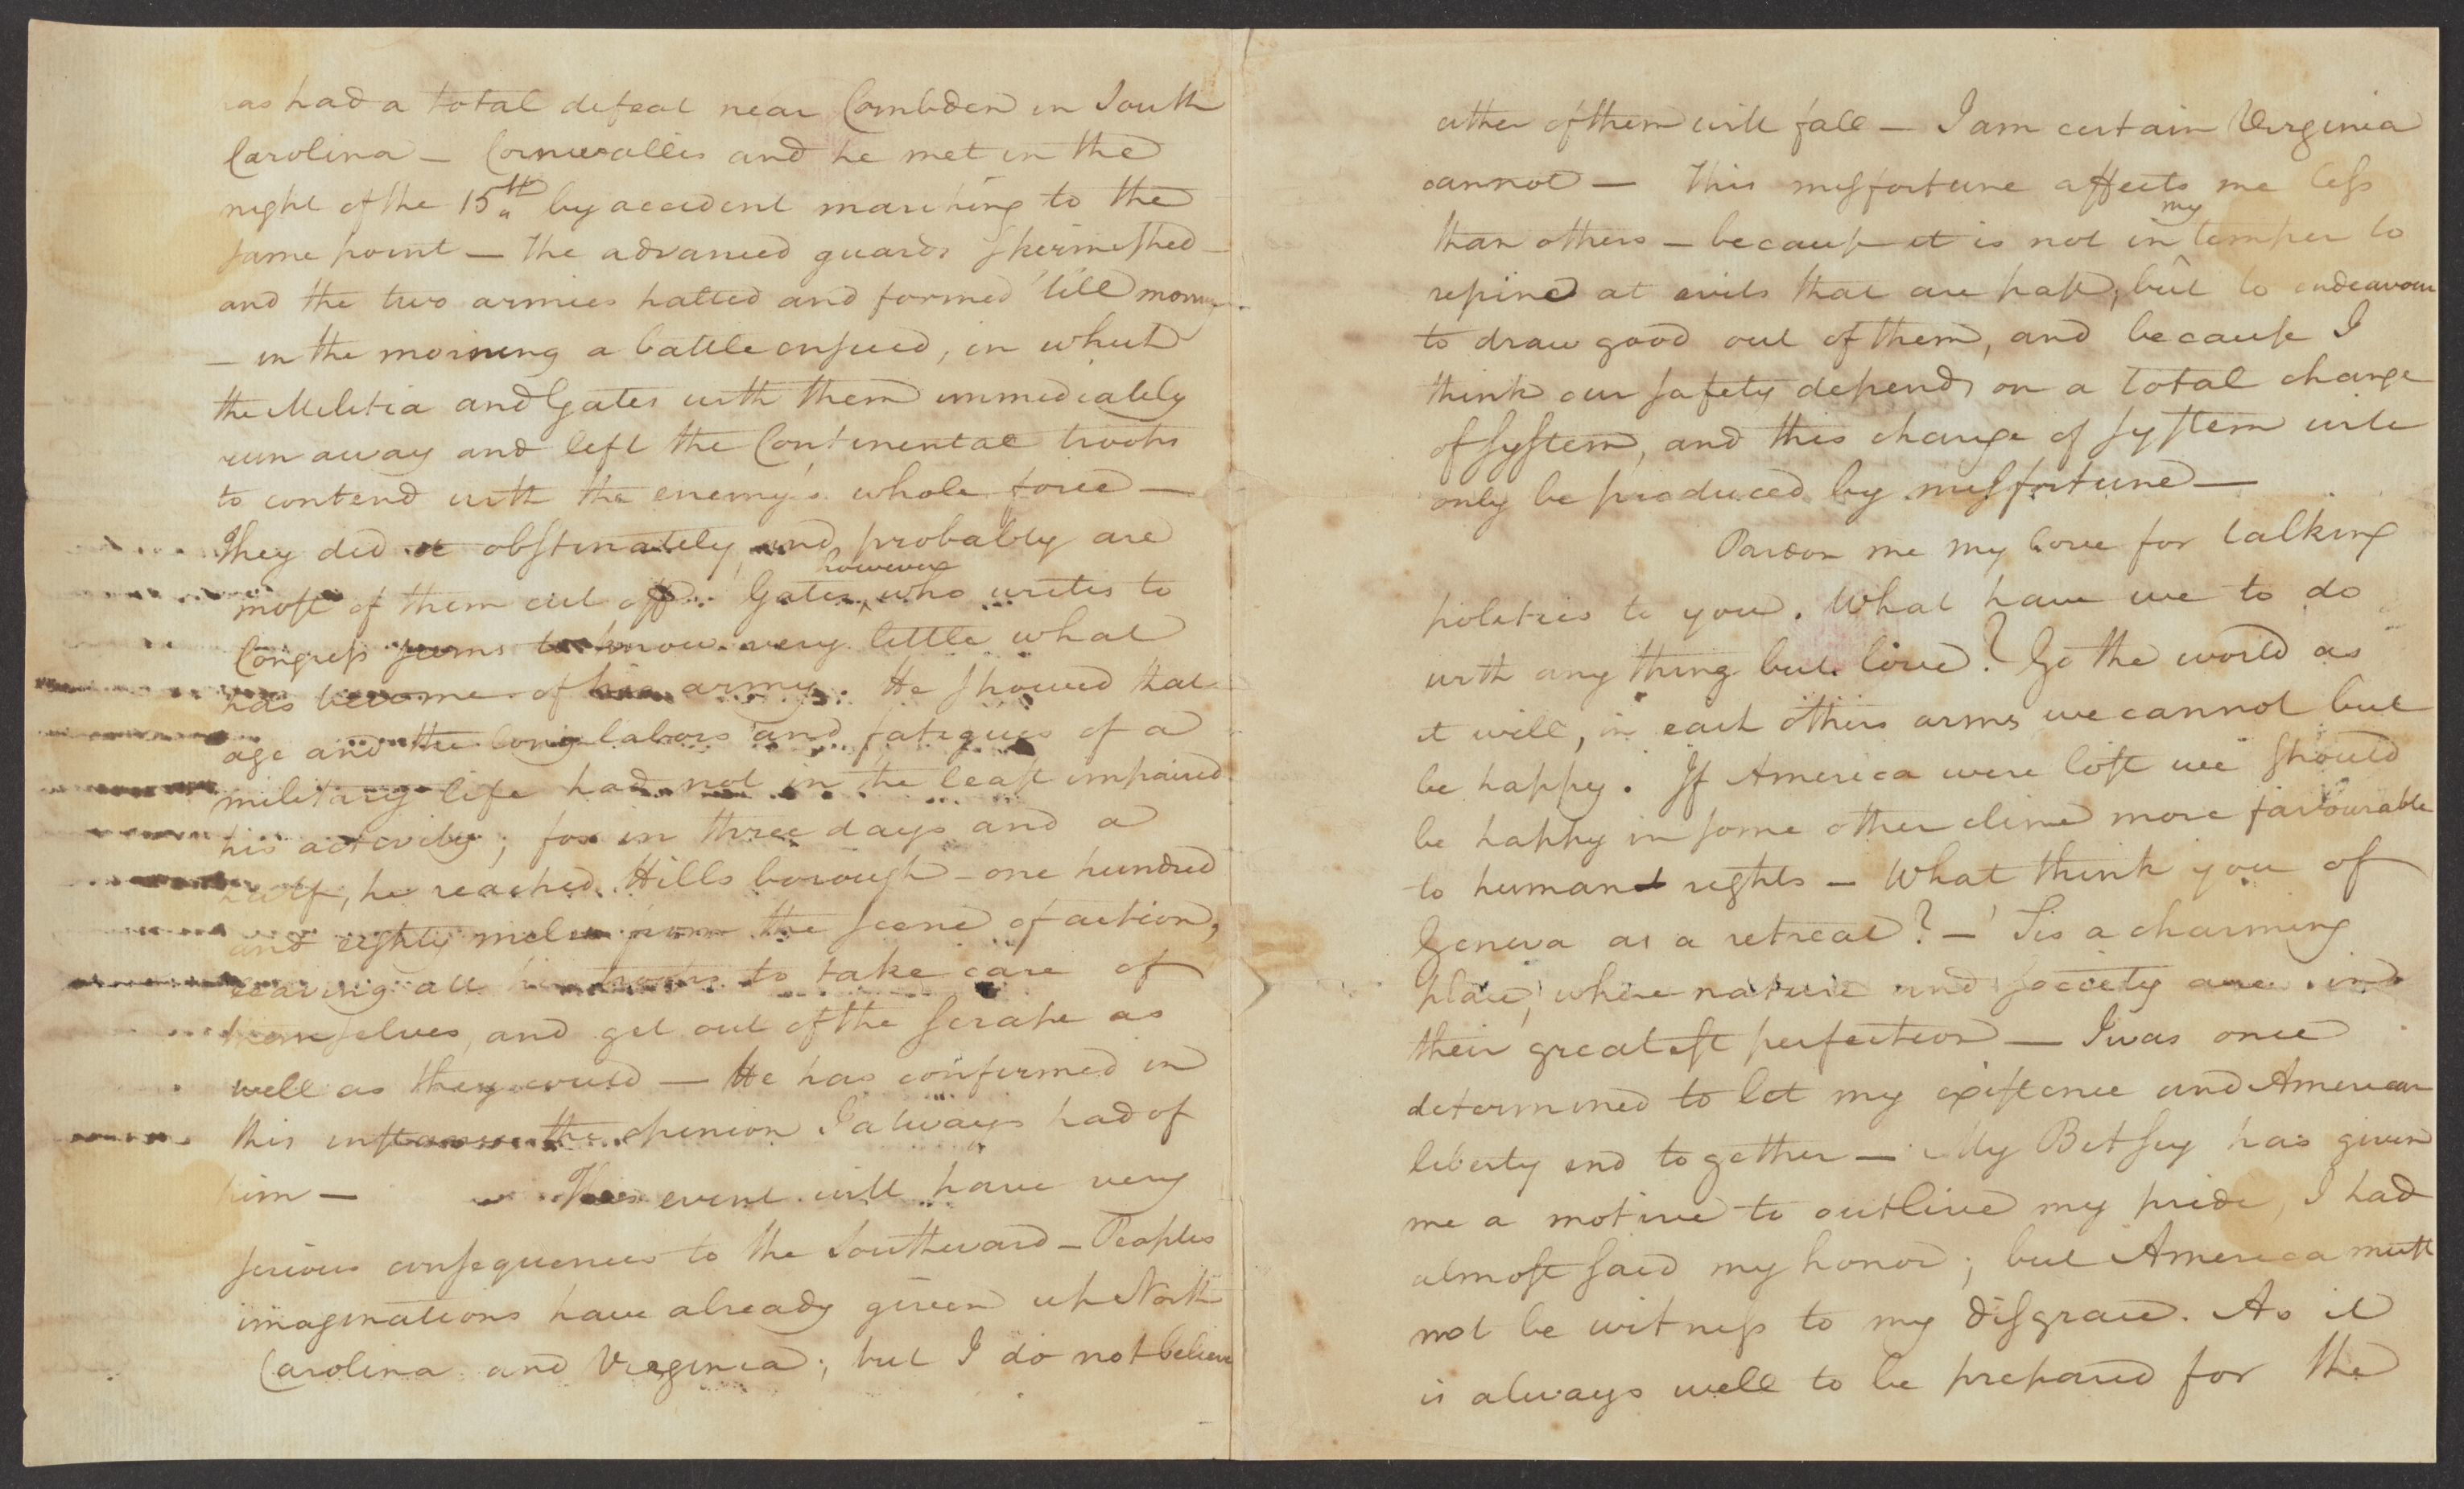 has had a total defeat near Cambden in South
Carolina — Cornwallis and he met in the
night of the 15th by accident marching to the
same point — The advanced guards skirmished —
and the two armies halted and formed 'till morning.
— in the morning a battle ensued, in which
the Militia and Gates with them immediately
run away and left the Continental troops
to contend with the enemy's whole force —
They did it obstinately, and probably are
most of them cut off. Gates, however who writes to
Congress seems to know very little what
has become of his army. He showed that
age and the long labors and fatigues of a
military life had not in the least impaired
his activity; for in three days and a
half, he reached Hills borough — one hundred
and eighty miles from the scene of action,
leaving all his troops to take care of
themselves, and get out of the scrape as
well as they could — He has confirmed in
this instance the opinion I always had of
him — This event will have very
serious consequences to the Southward — Peoples
imaginations have already given up North
Carolina and Virginia; but I do not believe
either of them will fall — I am certain Virginia
cannot — This misfortune affects me less
than others — because it is not in my temper to
repine at evils that are past, but to endeavour
to draw good out of them, and because I
think our safety depends on a total change
of system, and this change of system will
only be produced by misfortune —
Pardon me my love for talking
politics to you. What have we to do
with any thing but love? Go the world as
it will, in each others arms we cannot but
be happy. If America were lost we should
be happy in some other clime more favourable
to human rights — What think you of
Geneva as a retreat? — 'Tis a charming
place; where nature and society are in
their greatest perfection — I was once
determined to let my existence and American
liberty end together — My Betsey has given
me a motive to outlive my pride, I had
almost said my honor; but America must
not be witness to my disgrace. As it
is always well to be prepared for the